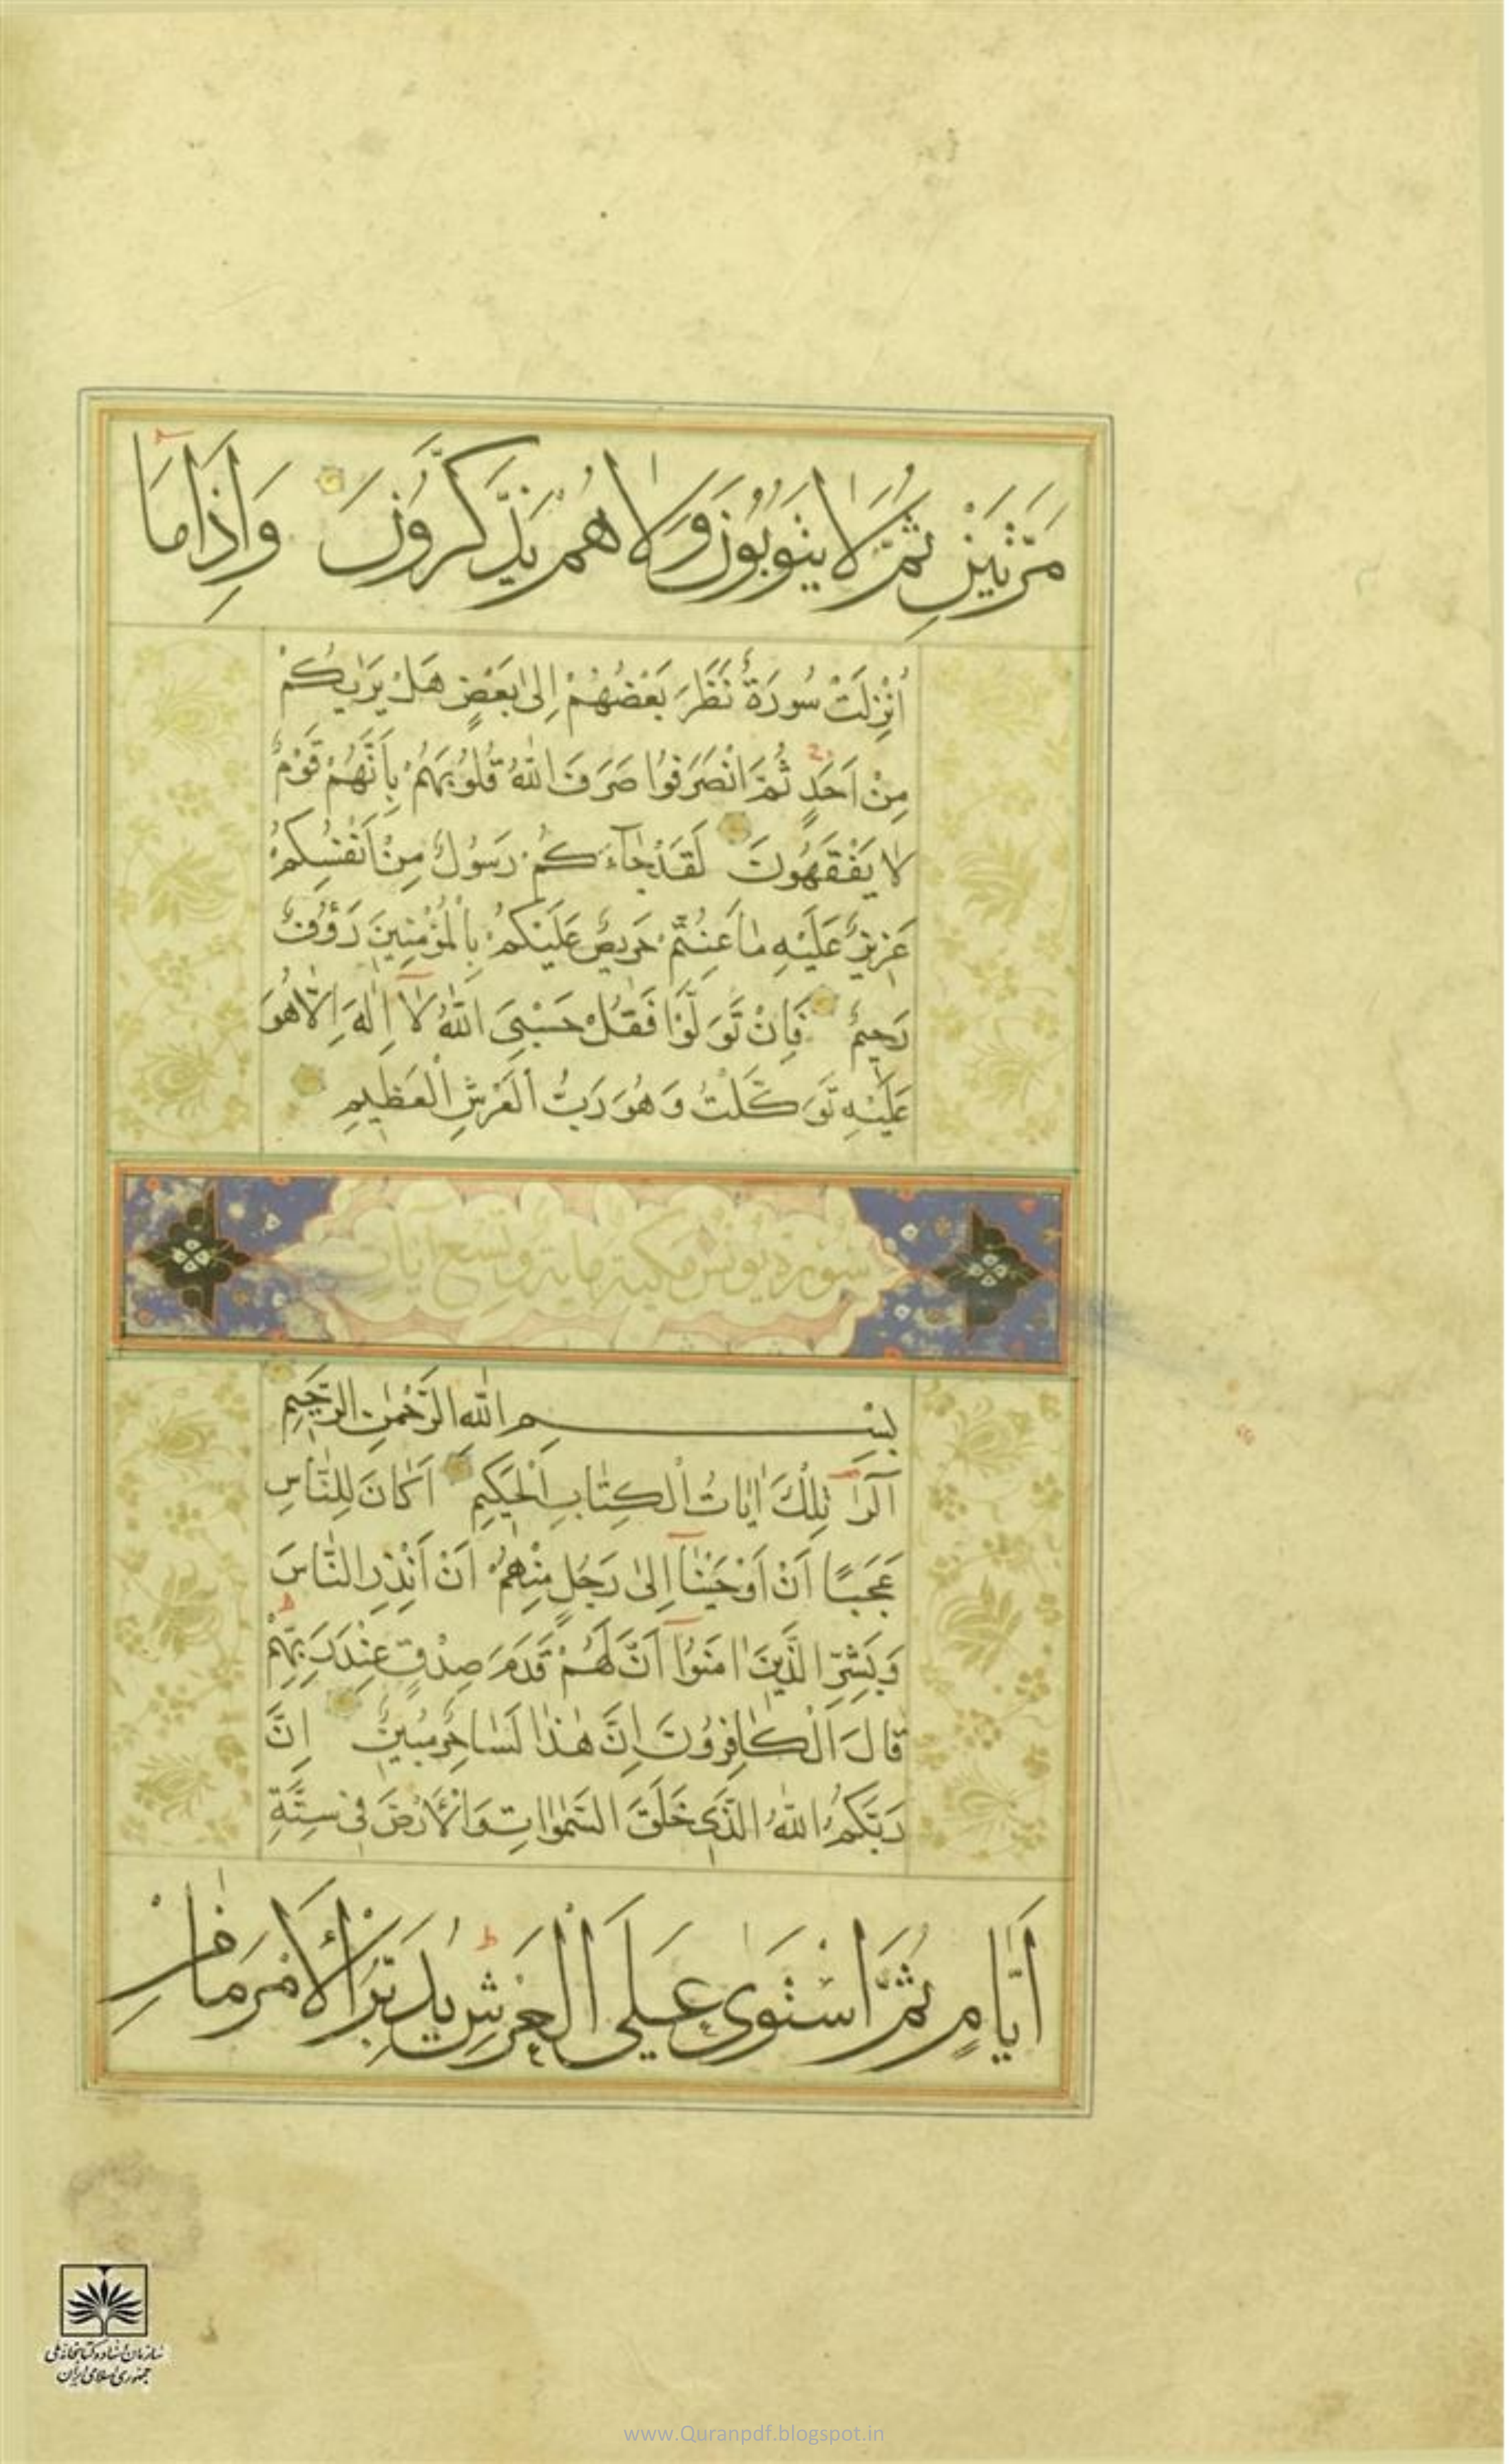 مَرَّتَيْنِ ثُمَّ لَا يَتُوبُونَ وَلَا هُمْ يَذَّكَّرُونَ وَاِذَا مَا
اُنْزِلَتْ سُورَةٌ نَظَرَ بَعْضُهُمْ اِلٰى بَعْضٍ هَلْ يَرٰيكُمْ
مِنْ اَحَدٍ ثُمَّ انْصَرَفُوا صَرَفَ اللّٰهُ قُلُوبَهُمْ بِاَنَّهُمْ قَوْمٌ
لَا يَفْقَهُونَ لَقَدْ جَاءَكُمْ رَسُولٌ مِنْ اَنْفُسِكُمْ
عَزِيزٌ عَلَيْهِ مَا عَنِتُّمْ حَرِيصٌ عَلَيْكُمْ بِالْمُؤْمِنِينَ رَؤُفٌ
رَحِيمٌ فَاِنْ تَوَلَّوْا فَقُلْ حَسْبِيَ اللّٰهُ لَا اِلٰهَ اِلَّا هُوَ
عَلَيْهِ تَوَكَّلْتُ وَهُوَ رَبُّ الْعَرْشِ الْعَظِيمِ
سورة يونس مكية ماية وتسع آيات
بِسْمِ اللّٰهِ الرَّحْمٰنِ الرَّحِيمِ
الٓرٰ تِلْكَ اٰيَاتُ الْكِتَابِ الْحَكِيمِ اَكَانَ لِلنَّاسِ
عَجَبًا اَنْ اَوْحَيْنَا اِلٰى رَجُلٍ مِنْهُمْ اَنْ اَنْذِرِ النَّاسَ
وَبَشِّرِ الَّذِينَ اٰمَنُوا اَنَّ لَهُمْ قَدَمَ صِدْقٍ عِنْدَ رَبِّهِمْ
قَالَ الْكَافِرُونَ اِنَّ هٰذَا لَسَاحِرٌ مُبِينٌ اِنَّ
رَبَّكُمُ اللّٰهُ الَّذِي خَلَقَ السَّمٰوَاتِ وَالْاَرْضَ فِي سِتَّةِ
اَيَّامٍ ثُمَّ اسْتَوٰى عَلَى الْعَرْشِ يُدَبِّرُ الْاَمْرَ مَا مِنْ
سازمان اسناد و کتابخانه ملی
جمهوری اسلامی ایران
www.Quranpdf.blogspot.in